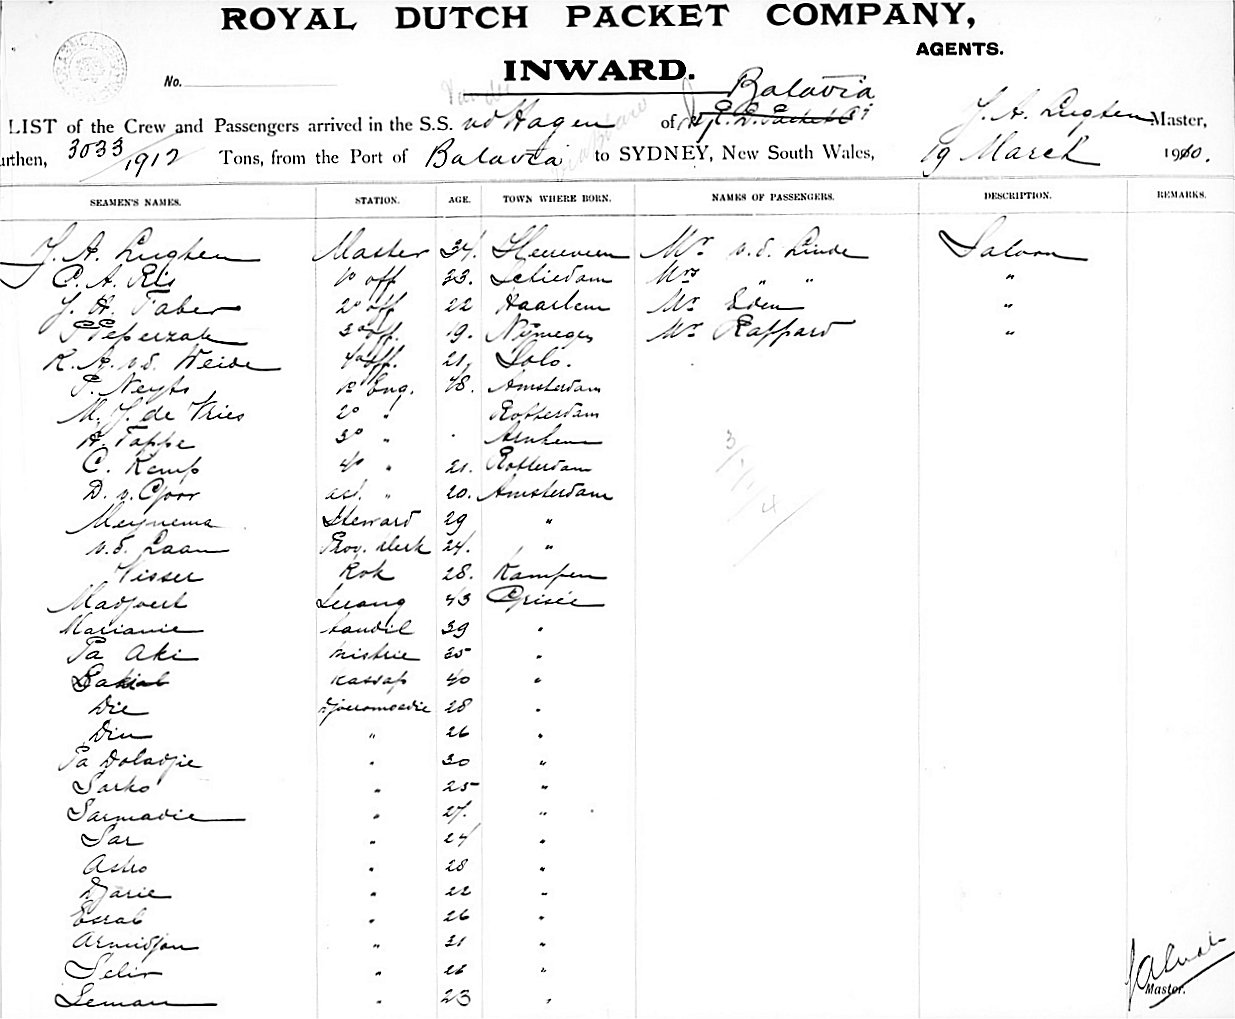 ROYAL DUTCH PACKET COMPANY,
AGENTS.
No.
INWARD.
Batavia
LIST of the Crew and Passengers arrived in the S.S. v d Hagen of J. A. Lugten Master,
urthen, 3033/1912 Tons, from the Port of Batavia to SYDNEY, New South Wales, 19 March 1910.
SEAMEN'S NAMES. STATION. AGE. TOWN WHERE BORN. NAMES OF PASSENGERS. DESCRIPTION. REMARKS.
J. A. Lugten Master 34. Heereveen Mr v. d. Linde Saloon
C. A. Ris 1e off 33. Schiedam Mrs " " "
J. H. Faber 2e off 22 Haarlem Mr Eden "
P Peperzak 3e off. 19. Nymegen Mr Rappard "
K. A. v. d. Weide 4e off. 21, Solo.
P. Neyts 1e Eng. 48. Amsterdam
M. J. de Vries 2e " Rotterdam
A. Tappe 3e " Arnhem
C. Kemp 4e " 21. Rotterdam
D. v. Goor ad. " 20. Amsterdam
Meynema Steward 29 "
v. d. Laan Prov. clerk 24. "
Visser Kok 28. Kampen
Madjoeit Serang 43 Grisée
Marianie tandil 39 "
Pa Aki mistrie 35 "
Kassap 40 "
Die Djoeromoedie 28 "
Din " 26 "
Pa Doladjie " 30 "
Sarko " 25 "
Sarmadie " 27. "
Sar " 24 "
Astro " 28 "
Djarie " 22 "
Esrab " 26 "
Armidjan " 31 "
Selir " 26 "
Seman " 23 "
Master.